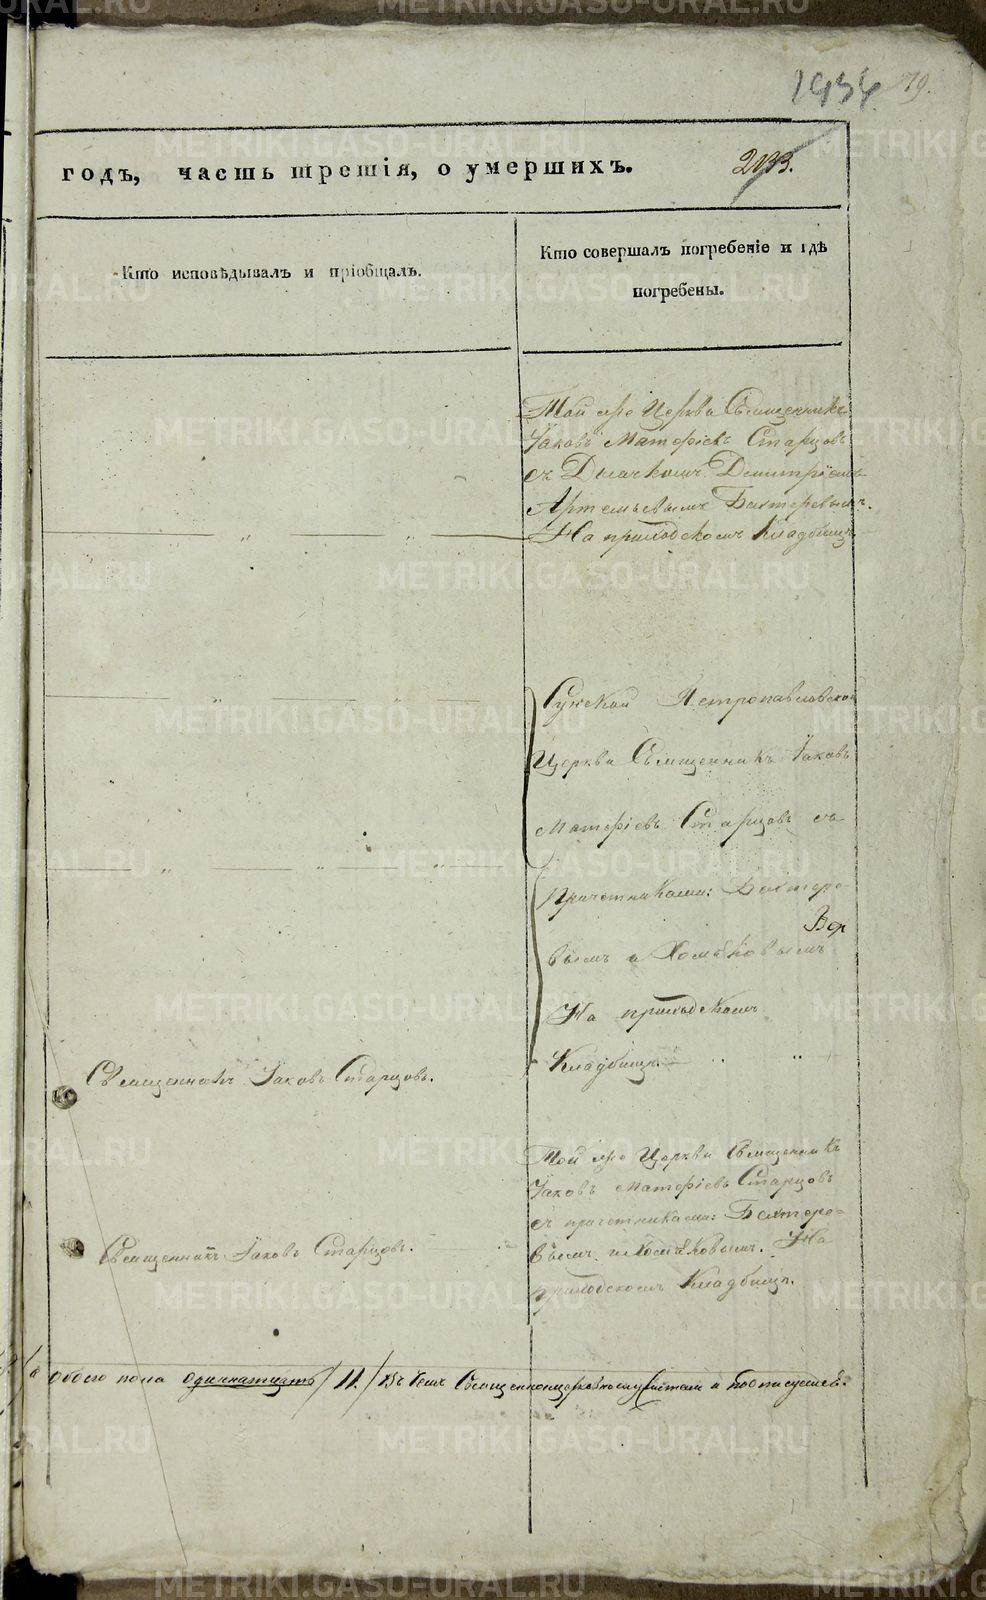 1934 79.
годъ, часть третія, о умершихъ. 2133.
Кто исповѣдывалъ и пріобщалъ.
Кто совершалъ погребеніе и гдѣ
погребены.
Той же Церкви Священникъ
Іаковъ Матфіевъ Старцовъ
съ Дьячкомъ Димитріемъ
Артемьевымъ Бахтеревымъ.
На приходскомъ Кладбищѣ
Петропавловской
Церкви Священникъ Іаковъ
Матфіевъ Старцовъ съ
причетниками: Бахтере-
вымъ и Хомяковымъ
На приходскомъ
Кладбищѣ.
Священникъ Іаковъ Старцовъ.
Той же Церкви Священникъ
Іаковъ Матфіевъ Старцовъ
съ причетниками: Бахтере=
вымъ и Хомяковымъ. На
приходскомъ Кладбищѣ.
Священникъ Іаковъ Старцовъ.
обоего пола одинатцать /11./ Въ чемъ Священноцерковнослужители и подписуемся.
METRIKI.GASO-URAL.RU